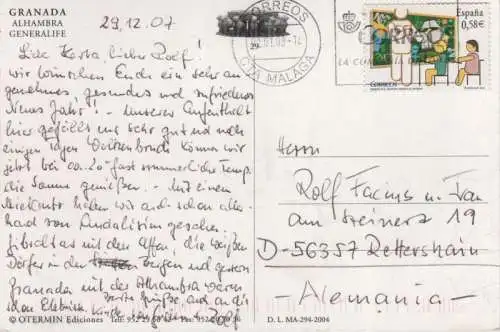 GRANADA
ALHAMBRA
GENERALIFE
29.12.07
CORREOS
CTA MALAGA
España
0,58€
CORREOS
LA
Liebe Herta, lieber Rolf!
wir wünschen Euch ein sehr an-
genehmes gesundes und zufriedenes
Neues Jahr! – Unserer Aufenthalt
hier gefällt uns sehr gut und nach
einigen Tagen können wir
jetzt bei ca. 20° fast sommerliche Temp.
die Sonne genießen. – Mit einem
haben wir auch schon aller-
hand von Andalusien gesehen.
Gibraltar mit den Affen, die weißen
Dörfer in den Bergen und gestern
Granada mit der Alhambra waren
schon Erlebnisse. Grüße, auch an die
Rolf
Herrn
Rolf Facius u. Frau
am Steinerz 19
D-56357 Rettershain
Alemania
© OTERMIN Ediciones Tel: 952 Fax: 952
D. L. MA-294-2004